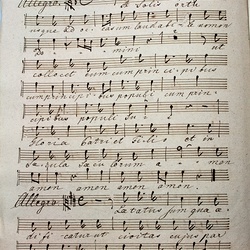 Allegro A solis ortu
usque ad occasum laudabile nomen
Domini ut
collocet eum cum principibus
cum principibus populi cum prin
cipibus populi Sui
Gloria Patri et Filio et in
saecula saeculorum amen
amen amen amen
Allegro Laetatus sum quia
di fi catur ut civitas cujus par